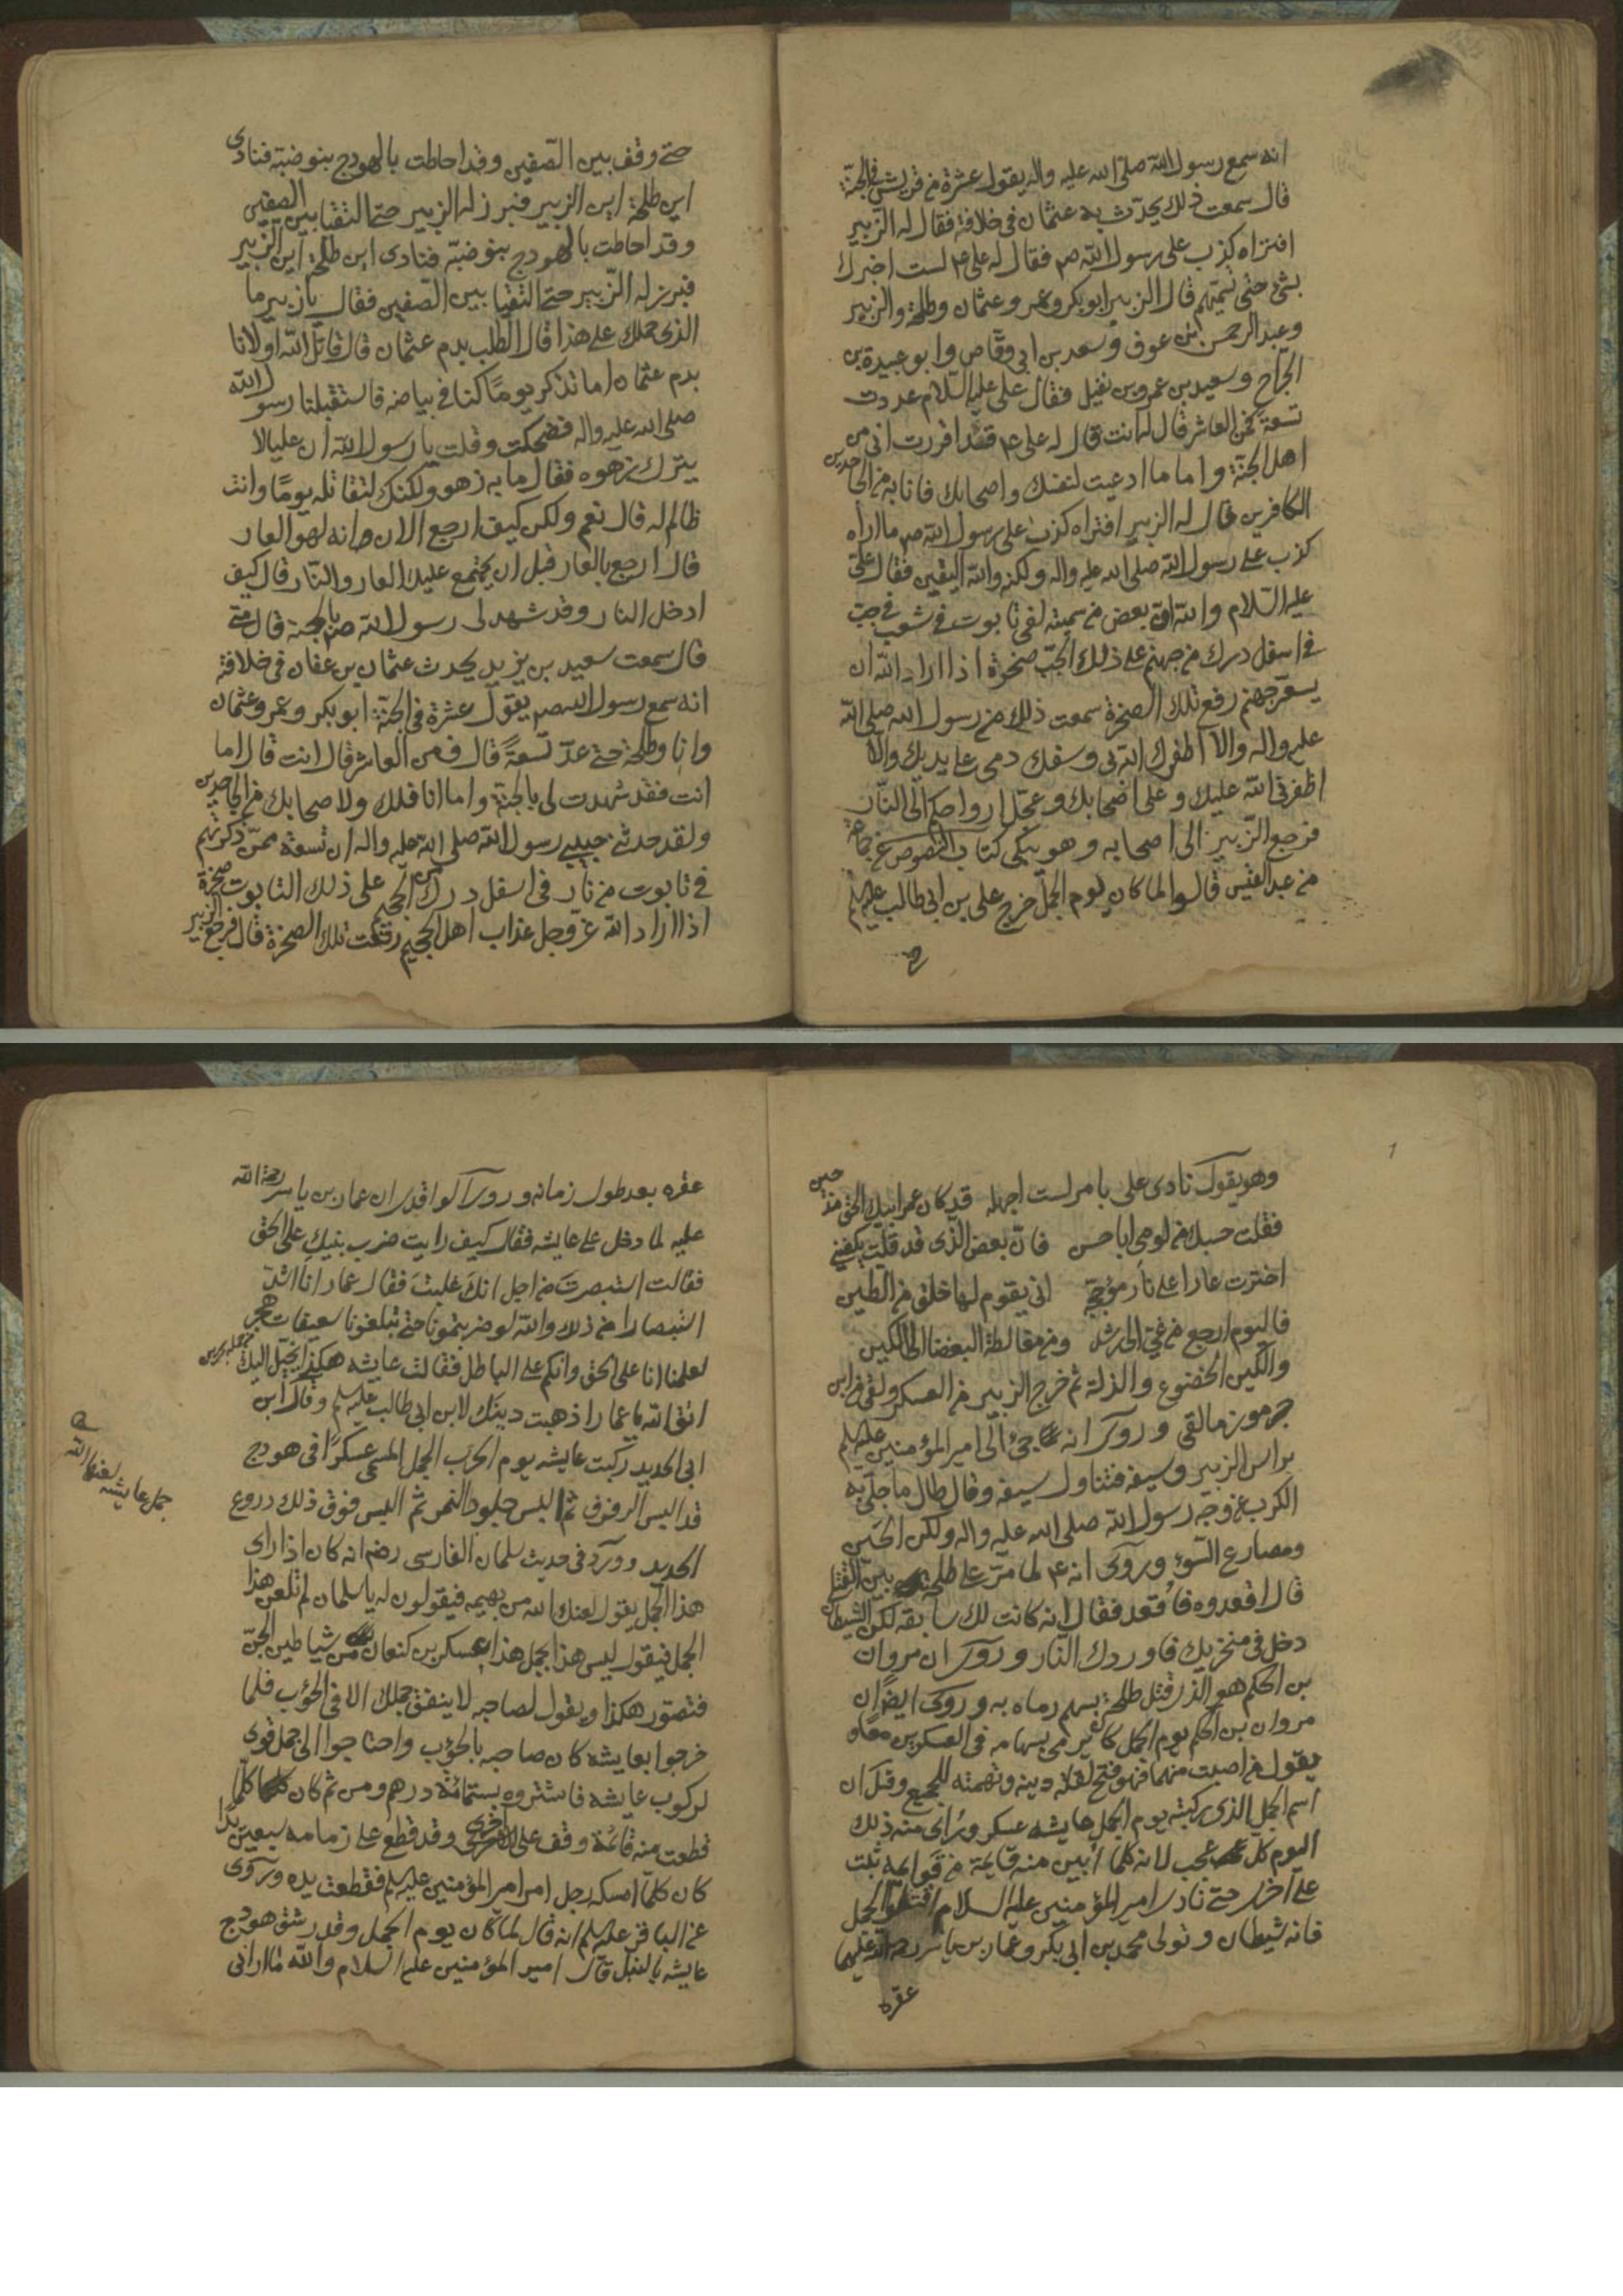 انه سمع رسول الله صلى الله عليه واله يقول عشرة من قريش في الجنة
قال سمعت ذلك يحدّث به عثمان في خلافة فقال له الزبير
افتراه كذب على رسول الله ص فقال له على ع لست اخبرك
بشئ حتى تسميهم قال الزبير ابو بكر وعمر وعثمان وطلحة والزبير
وعبد الرحمن بن عوف وسعد بن ابي وقاص وابو عبيدة بن
الجراح وسعيد بن عمرو بن نفيل فقال على عليه السلام عددت
تسعة فمن العاشر قال له انت قال له على ع فقد اقررت اني من
اهل الجنة واما ما ادعيت لنفسك واصحابك فانا به من الجاحدين
الكافرين قال له الزبير افتراه كذب على رسول الله ص ما اراه
كذب على رسول الله صلى الله عليه واله ولكنه والله اليقين فقال على
عليه السلام والله ان بعض من سميته لفي تابوت في شعب في جب
في اسفل درك من جهنم على ذلك الجب صخرة اذا اراد الله ان
يسعر جهنم رفع تلك الصخرة سمعت ذلك من رسول الله صلى الله
عليه واله والا اظفرك الله بي وسفك دمى على يديك والا
اظفرني الله عليك وعلى اصحابك وعجل ارواحكم الى النار
فرجع الزبير الى اصحابه وهو يبكى كتاب النصوص عن جماعة
من عبد القيس قالوا لما كان يوم الجمل خرج على بن ابى طالب عليه السلم
حتى وقف بين الصفين وقد احاطت بالهودج بنو ضبة فنادى
اين طلحة اين الزبير فبرز له الزبير حتى التقيا بين الصفين
وقد احاطت بالهودج بنو ضبة فنادى اين طلحة اين الزبير
فبرز له الزبير حتى التقيا بين الصفين فقال يا زبير ما
الذى حملك على هذا قال الطلب بدم عثمان قال قاتل الله اولانا
بدم عثمان اما تذكر يوما كنا في بياضه فاستقبلنا رسول الله
صلى الله عليه واله فضحكت وقلت يا رسول الله ان عليا لا
يترك زهوه فقال ما به زهو ولكنك لتقاتله يوما وانت
ظالم له قال نعم ولكن كيف ارجع الان وانه لهو العار
قال ارجع بالعار قبل ان يجتمع عليك العار والنار قال كيف
ادخل النار وقد شهد لى رسول الله ص بالجنة قال متى
قال سمعت سعيد بن يزيد يحدث عثمان بن عفان في خلافته
انه سمع رسول الله ص يقول عشرة في الجنة ابو بكر وعمر وعثمان
وانا وطلحة حتى عدّ تسعةً قال فمن العاشر قال انت قال اما
انت فقد شهدت لى بالجنة واما انا فلك ولاصحابك من الجاحدين
ولقد حدثني حبيبي رسول الله صلى الله عليه واله ان تسعة ممن ذكرتهم
في تابوت من نار في اسفل درك الجحيم على ذلك التابوت صخرة
اذا اراد الله عز وجل عذاب اهل الجحيم رفعت تلك الصخرة قال فرجع الزبير
وهو يقول نادى على بامر لست اجهله قد كان عمر ابيك الحق مذ حين
فقلت حسبك من لومى ابا حسن فان بعض الذى قد قلت يكفيني
اخترت عارا على نار مؤججة انى يقوم لها خلق من الطين
فاليوم ارجع من غي الى رشد ومن مغالطة البغضا الى اللين
واللين الخضوع والذلة ثم خرج الزبير من العسكر ولقى من ابن
جرموز ما لقى وروى انه جئ الى امير المؤمنين عليه السلم
براس الزبير وسيفه فتناول سيفه وقال طال ما جلى به
الكرب عن وجه رسول الله صلى الله عليه واله ولكن الحين
ومصارع السوء وروى انه ع لما مرّ على طلحة بين القتلى
قال اقعدوه فاُقعد فقال انه كانت لك سابقه لكن الشيطان
دخل في منخريك فاوردك النار وروى ان مروان
بن الحكم هو الذى قتل طلحة بسهم رماه به وروى ايضا ان
مروان بن الحكم يوم الجمل كان يرمى بسهامه في العسكرين معا و
يقول من اصبت منهما فهو فتح لقلة دينه وتهمته للجميع وقيل ان
اسم الجمل الذى ركبته يوم الجمل عايشه عسكر ورُاى منه ذلك
اليوم كل عجب لانه كلما ابين منه قايمة من قوايمه ثبت
على اخرى حتى نادى امير المؤمنين عليه السلام اقتلوا الجمل
فانه شيطان وتولى محمد بن ابى بكر وعمار بن ياسر رحمة الله عليهما
عقره
عقره بعد طول زمانه وروى الواقدى ان عمار بن ياسر رحمة الله
عليه لما دخل على عايشه فقال كيف رايت ضرب بنيك على الحق
فقالت استبصرتَ من اجل انك غلبت فقال عمار انا اشدّ
استبصارا من ذلك والله لو ضربتمونا حتى تبلغونا سعيفات هجر
لعلمنا انا على الحق وانكم على الباطل فقالت عايشه هكذا يخيل اليك
اتق الله يا عمار اذهبت دينك لابن ابى طالب عليه السلم وقال ابن
ابى الحديد ركبت عايشه يوم الحرب الجمل المسمى عسكرًا فى هودج
قد البس الرفرف ثم البس جلود النمر ثم البس فوق ذلك دروع
الحديد وورد في حديث سلمان الفارسى رضه انه كان اذا راى
هذا الجمل يقول لعنك الله من بهيمه فيقولون له يا سلمان لم تلعن هذا
الجمل فيقول ليس هذا بجمل هذا عسكر بن كنعان من شياطين الجنّ
فتصور هكذا ويقول لصاحبه لا ينفق جملك الا في الحؤب فلما
خرجوا بعايشه كان صاحبه بالحؤب واحتاجوا الى جمل قوى
لركوب عايشه فاشتروه بستمائة درهم ومن ثم كان كلّما
قطعت منه قائمة وقف على اخرى وقد قطع على زمامه سبعين يدا
كان كلما امسكه رجل امر امير المؤمنين عليه السلم فقطعت يده وروى
عن الباقر عليه السلم انه قال لما كان يوم الجمل وقد رشق هودج
عايشه بالنبل قال امير المؤمنين عليه السلام والله ما ارانى
جمل عايشه لعنها الله